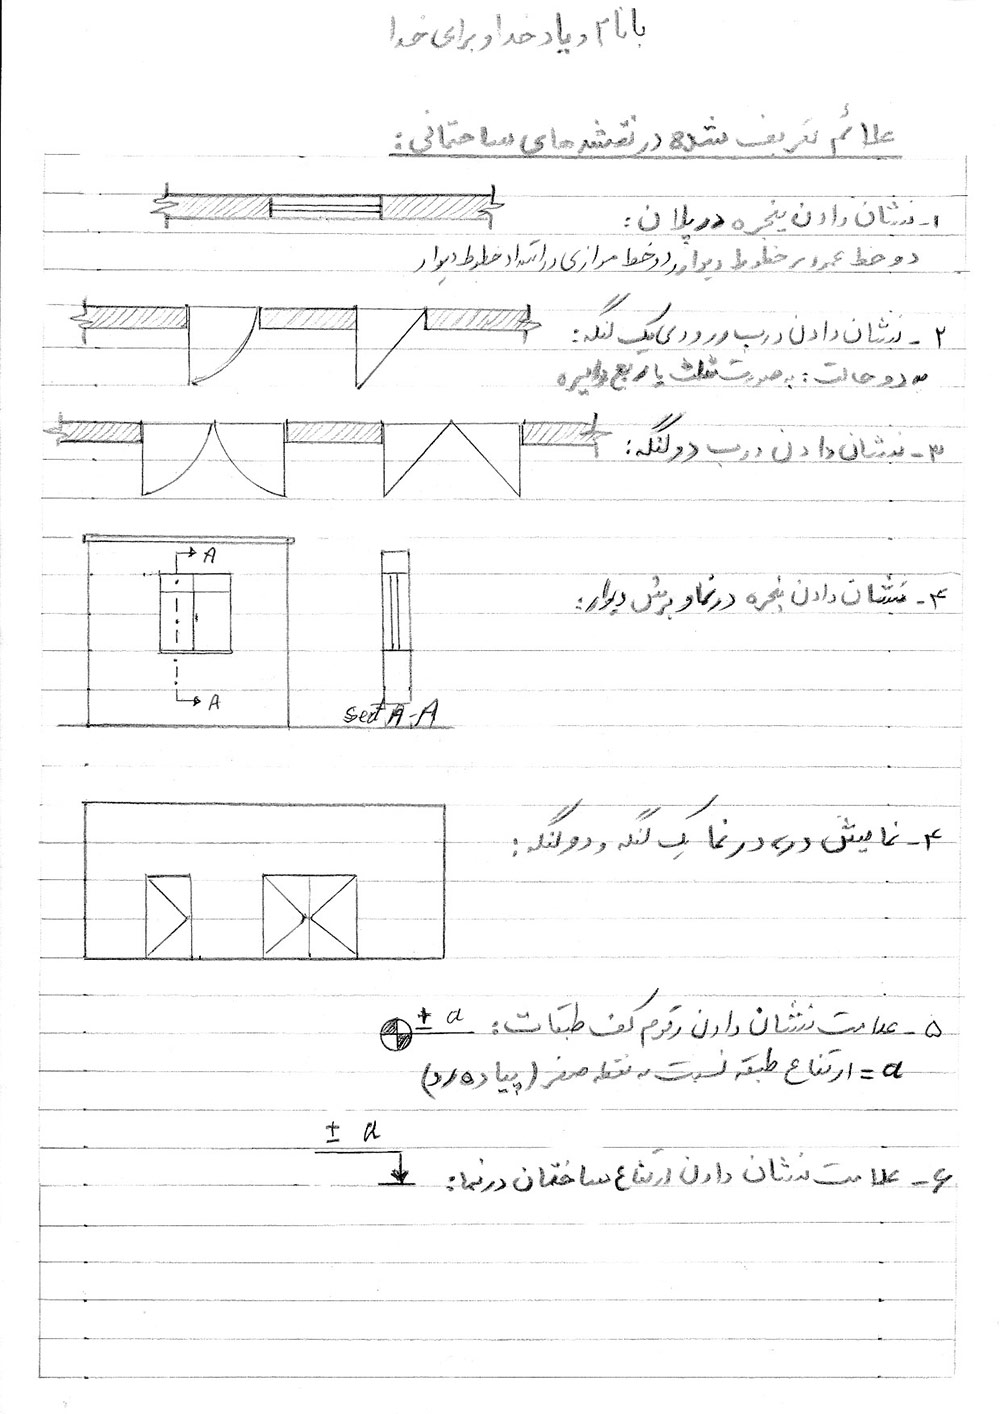 بانام و یاد خدا و برای خدا
علائم تعریف شده در نقشه های ساختمانی:
۱- نشان دادن پنجره در پلان:
دو خط عمود بر خطوط دیوار و دو خط موازی در امتداد خطوط دیوار
۲- نشان دادن درب ورودی یک لنگه:
به دو حالت: به صورت مثلث یا ربع دایره
۳- نشان دادن درب دو لنگه:
۴- نشان دادن پنجره در نما و برش دیوار:
A
A
sect A-A
۴- نمایش درب در نما یک لنگه و دو لنگه:
۵- علامت نشان دادن رقوم کف طبقات: ± a
a = ارتفاع طبقه نسبت به نقطه صفر (پیاده رو)
± a
۶- علامت نشان دادن ارتفاع ساختمان در نما: